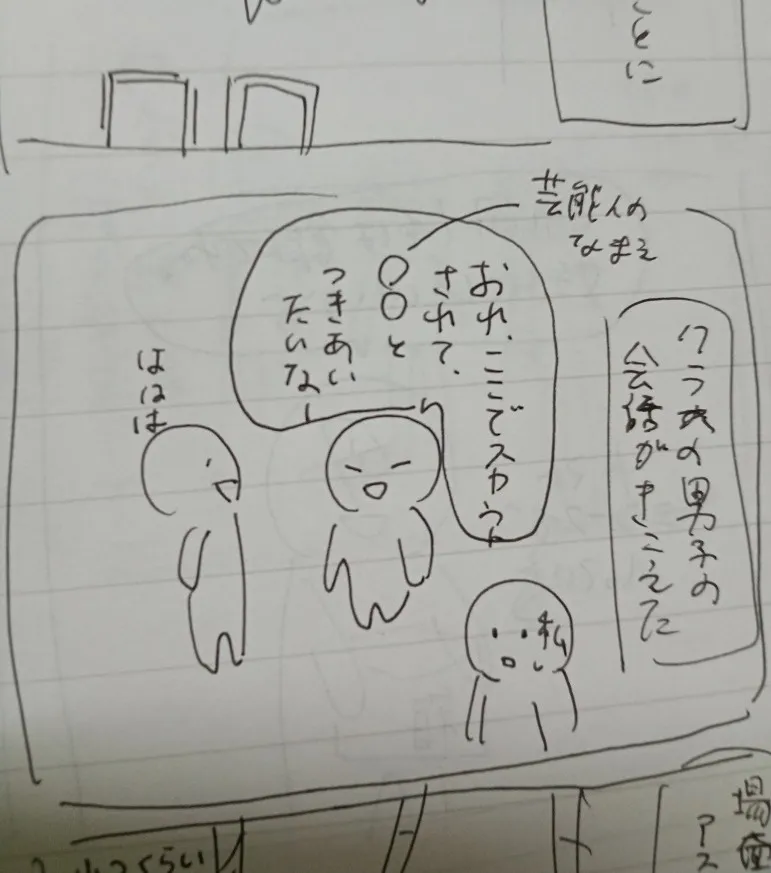 とに
芸能人の
なまえ
クラスの男子の
会話がきこえた
おれ、ここでスカウト
されて、
〇〇と
つきあい
たいなー
ははは
私
場面
アス
くらい